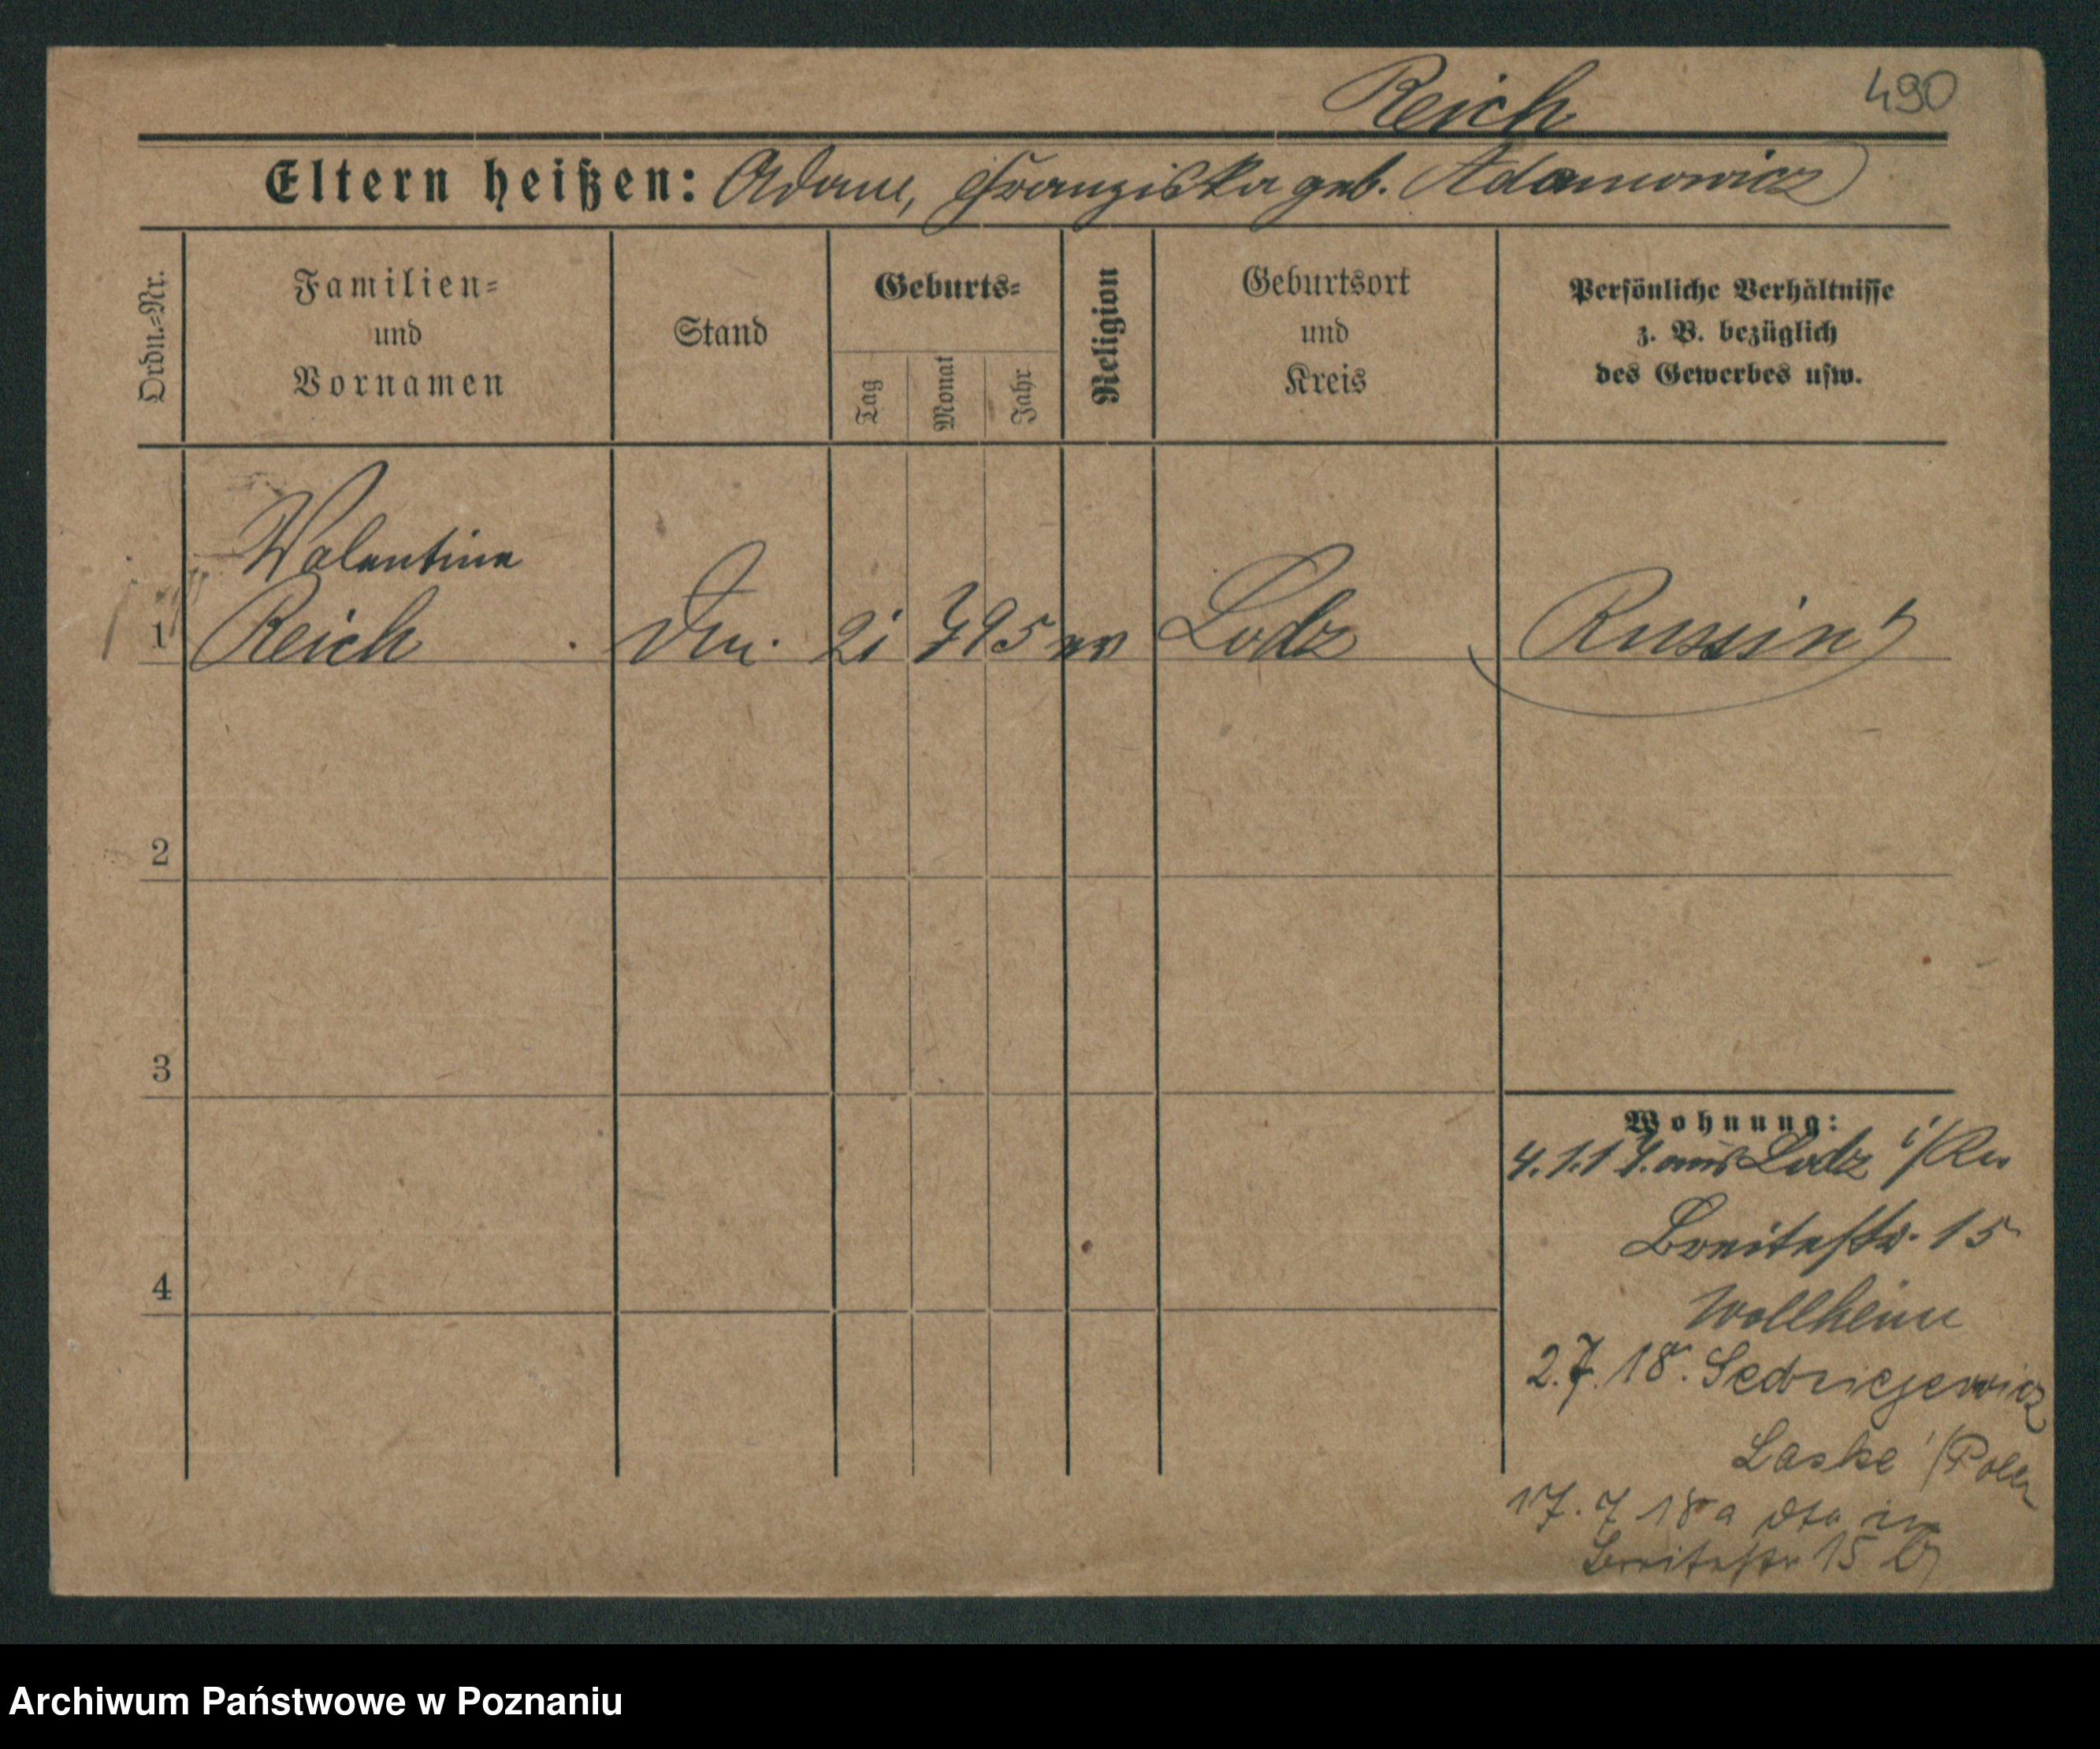 Reich 490
Eltern heißen: Adam, Franziska geb. Adamowicz
Ordn.=Nr.
Familien=
und
Vornamen
Stand
Geburts=
Tag
Monat
Jahr
Religion
Geburtsort
und
Kreis
Persönliche Verhältnisse
z. B. bezüglich
des Gewerbes usw.
Walentina
1 Reich 21 7 95 Lodz Russin
2
3
4
Wohnung:
4.1.17. aus Lodz i/Ru
Breitestr. 15
Wollheim
2.7.18.
Laske i/Polen
17.7 18 a dto in
Breitestr 15
Archiwum Państwowe w Poznaniu